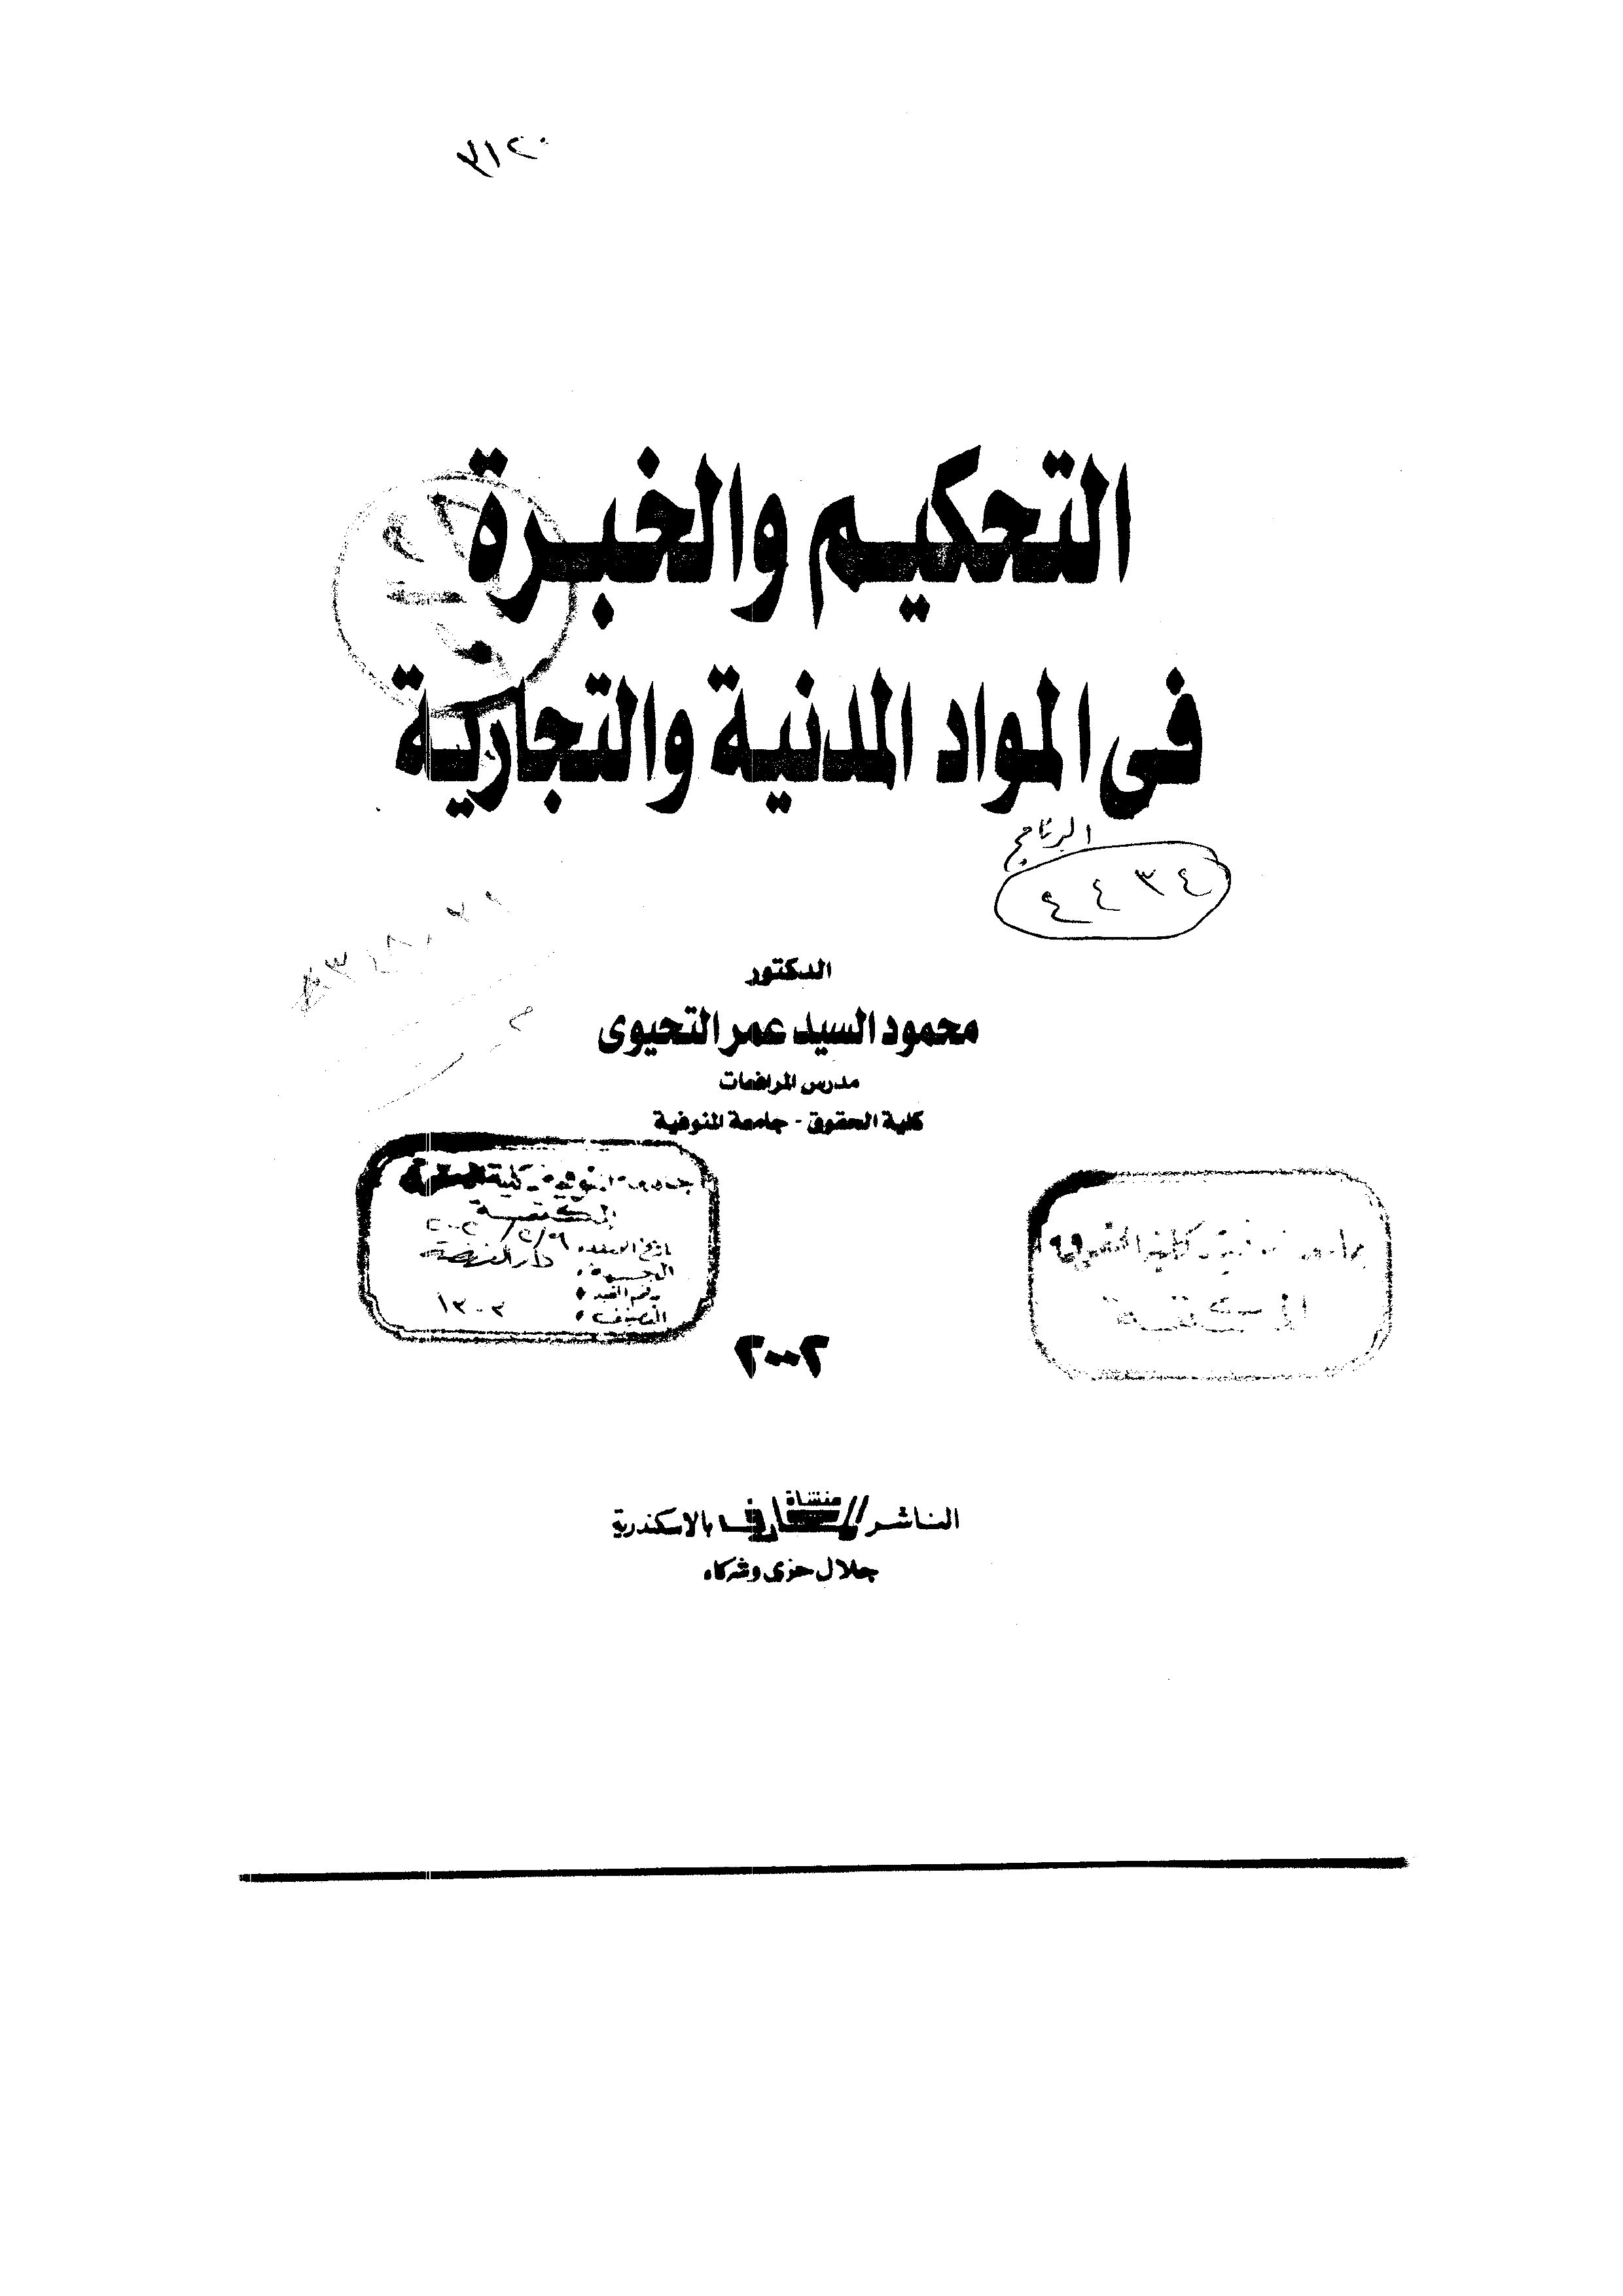 التحكيم والخبرة
فى المواد المدنية والتجارية
البرنامج
٤٣٤٤
الدكتور
محمود السيد عمر التحيوى
مدرس المرافعات
كلية الحقوق - جامعة المنوفية
المكتبة
دار النهضة
١٣٠٣
٢٠٠٢
الناشر منشأة المعارف بالاسكندرية
جلال حزى وشركاه